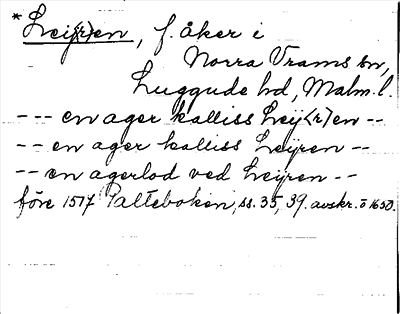 *Leij(r)en, f. åker i
Norra Vrams sn,
Luggude hd, Malm. l.
--- en ager kalliss Leij<r>en --
-- en ager kalliss Leijren --
-- en agerlod ved Leijren --
före 1517 Palteboken, ss. 35, 39. avskr. o 1650.